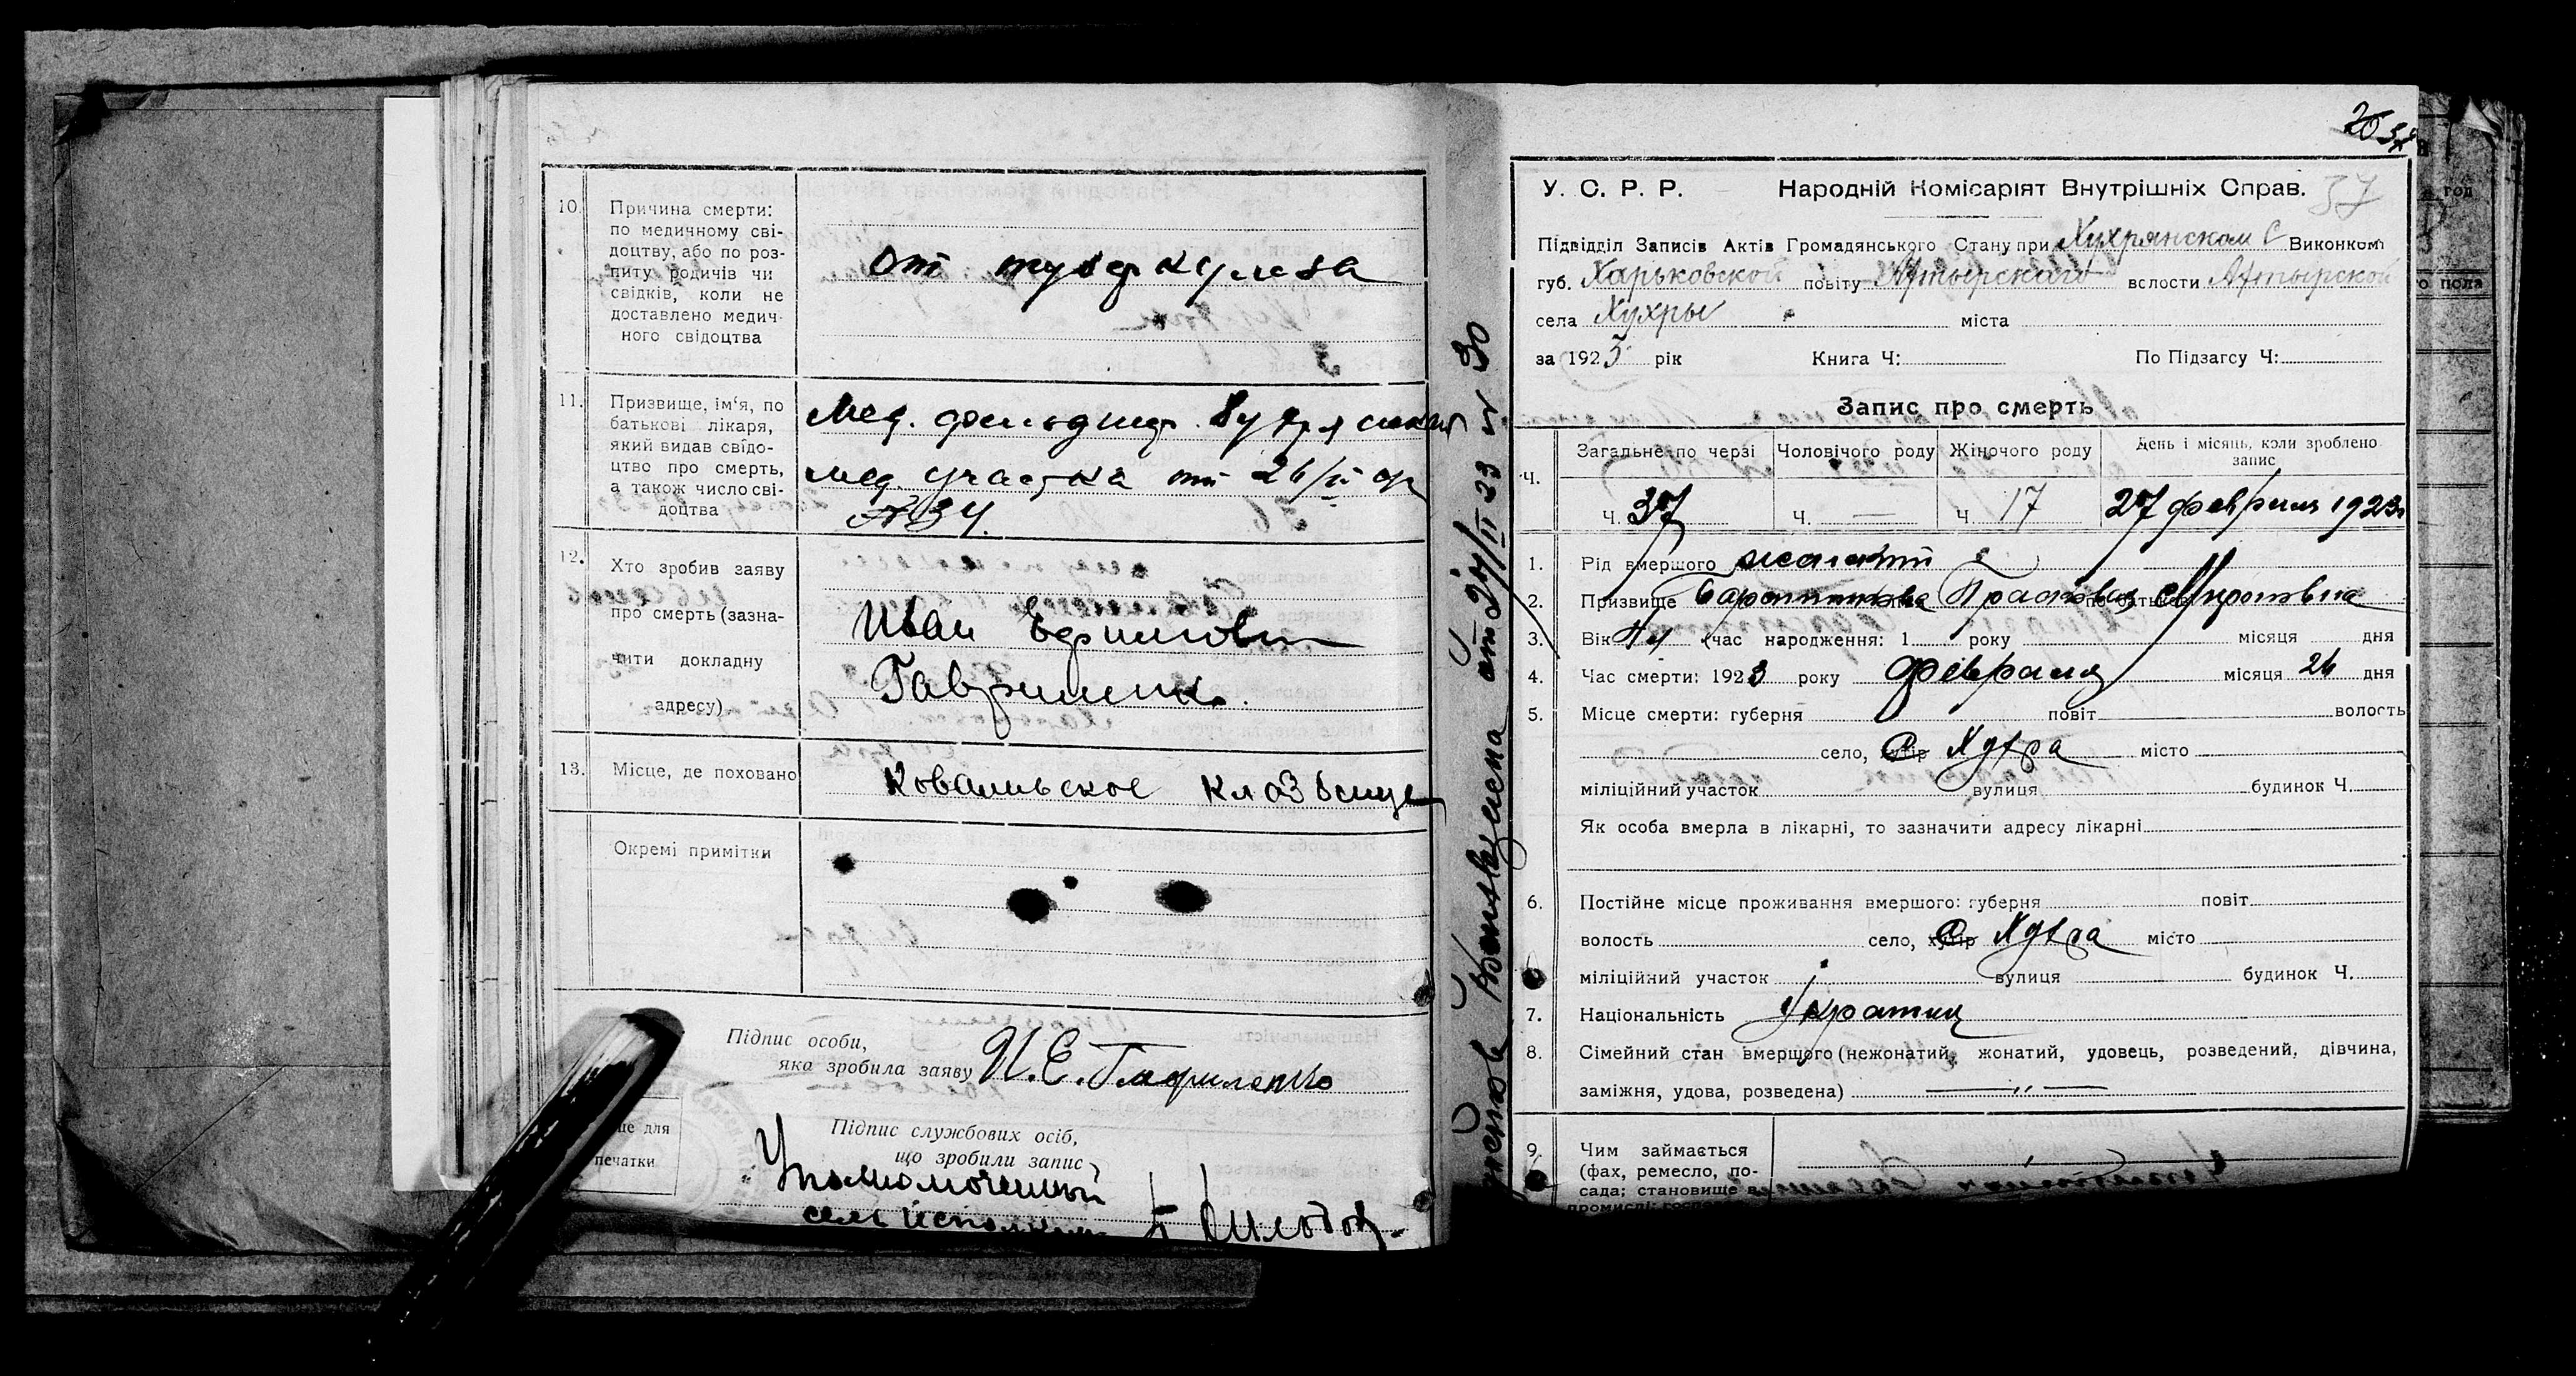 10. Причина смерти:
по медичному сві-
доцтву, або по роз-
питу родичів чи
свідків, коли не
доставлено медич-
ного свідоцтва
от туберкулеза
11. Призвище, ім'я, по
батькові лікаря,
який видав свідо-
цтво про смерть,
а також число сві-
доцтва
Мед. фельдшер
мед. участка от 26/II
№ 34.
12. Хто зробив заяву
про смерть (зазна-
чити докладну
адресу)
Иван Ефимович
Гавриленко.
13. Місце, де поховано
Ковальское кладбище
Окремі примітки
Підпис особи,
яка зробила заяву И. Е. Гавриленко
Підпис службових осіб,
що зробили запис
печатки
Уполномоченный
сельисполкома
от 27/II 23 № 30
37
У. С. Р. Р. Народній Комісаріят Внутрішніх Справ.
Підвідділ Записів Актів Громадянського Стану при Хухрянском С Виконкомі
губ. Харьковской повіту Ахтырского волости Ахтырской
села Хухры міста
за 1923 рік Книга Ч: По Підзагсу Ч:
Запис про смерть
Ч. Загальне по черзі Чоловічого роду Жіночого роду День і місяць, коли зроблено запис
Ч. 37 Ч. — Ч. 17 27 февраля 1923
1. Рід вмершого
2. Призвище по батькові Мироновна
3. Вік (час народження: 1 року місяця дня
4. Час смерти: 1923 року февраля місяця 26 дня
5. Місце смерти: губерня повіт волость
село, хутір Хухра місто
міліційний участок вулиця будинок Ч.
Як особа вмерла в лікарні, то зазначити адресу лікарні
6. Постійне місце проживання вмершого: губерня повіт
волость село, хутір Хухра місто
міліційний участок вулиця будинок Ч.
7. Національність
8. Сімейний стан вмершого (нежонатий, жонатий, удовець, розведений, дівчина,
заміжня, удова, розведена) — „ —
9. Чим займається
(фах, ремесло, по-
сада; становище в